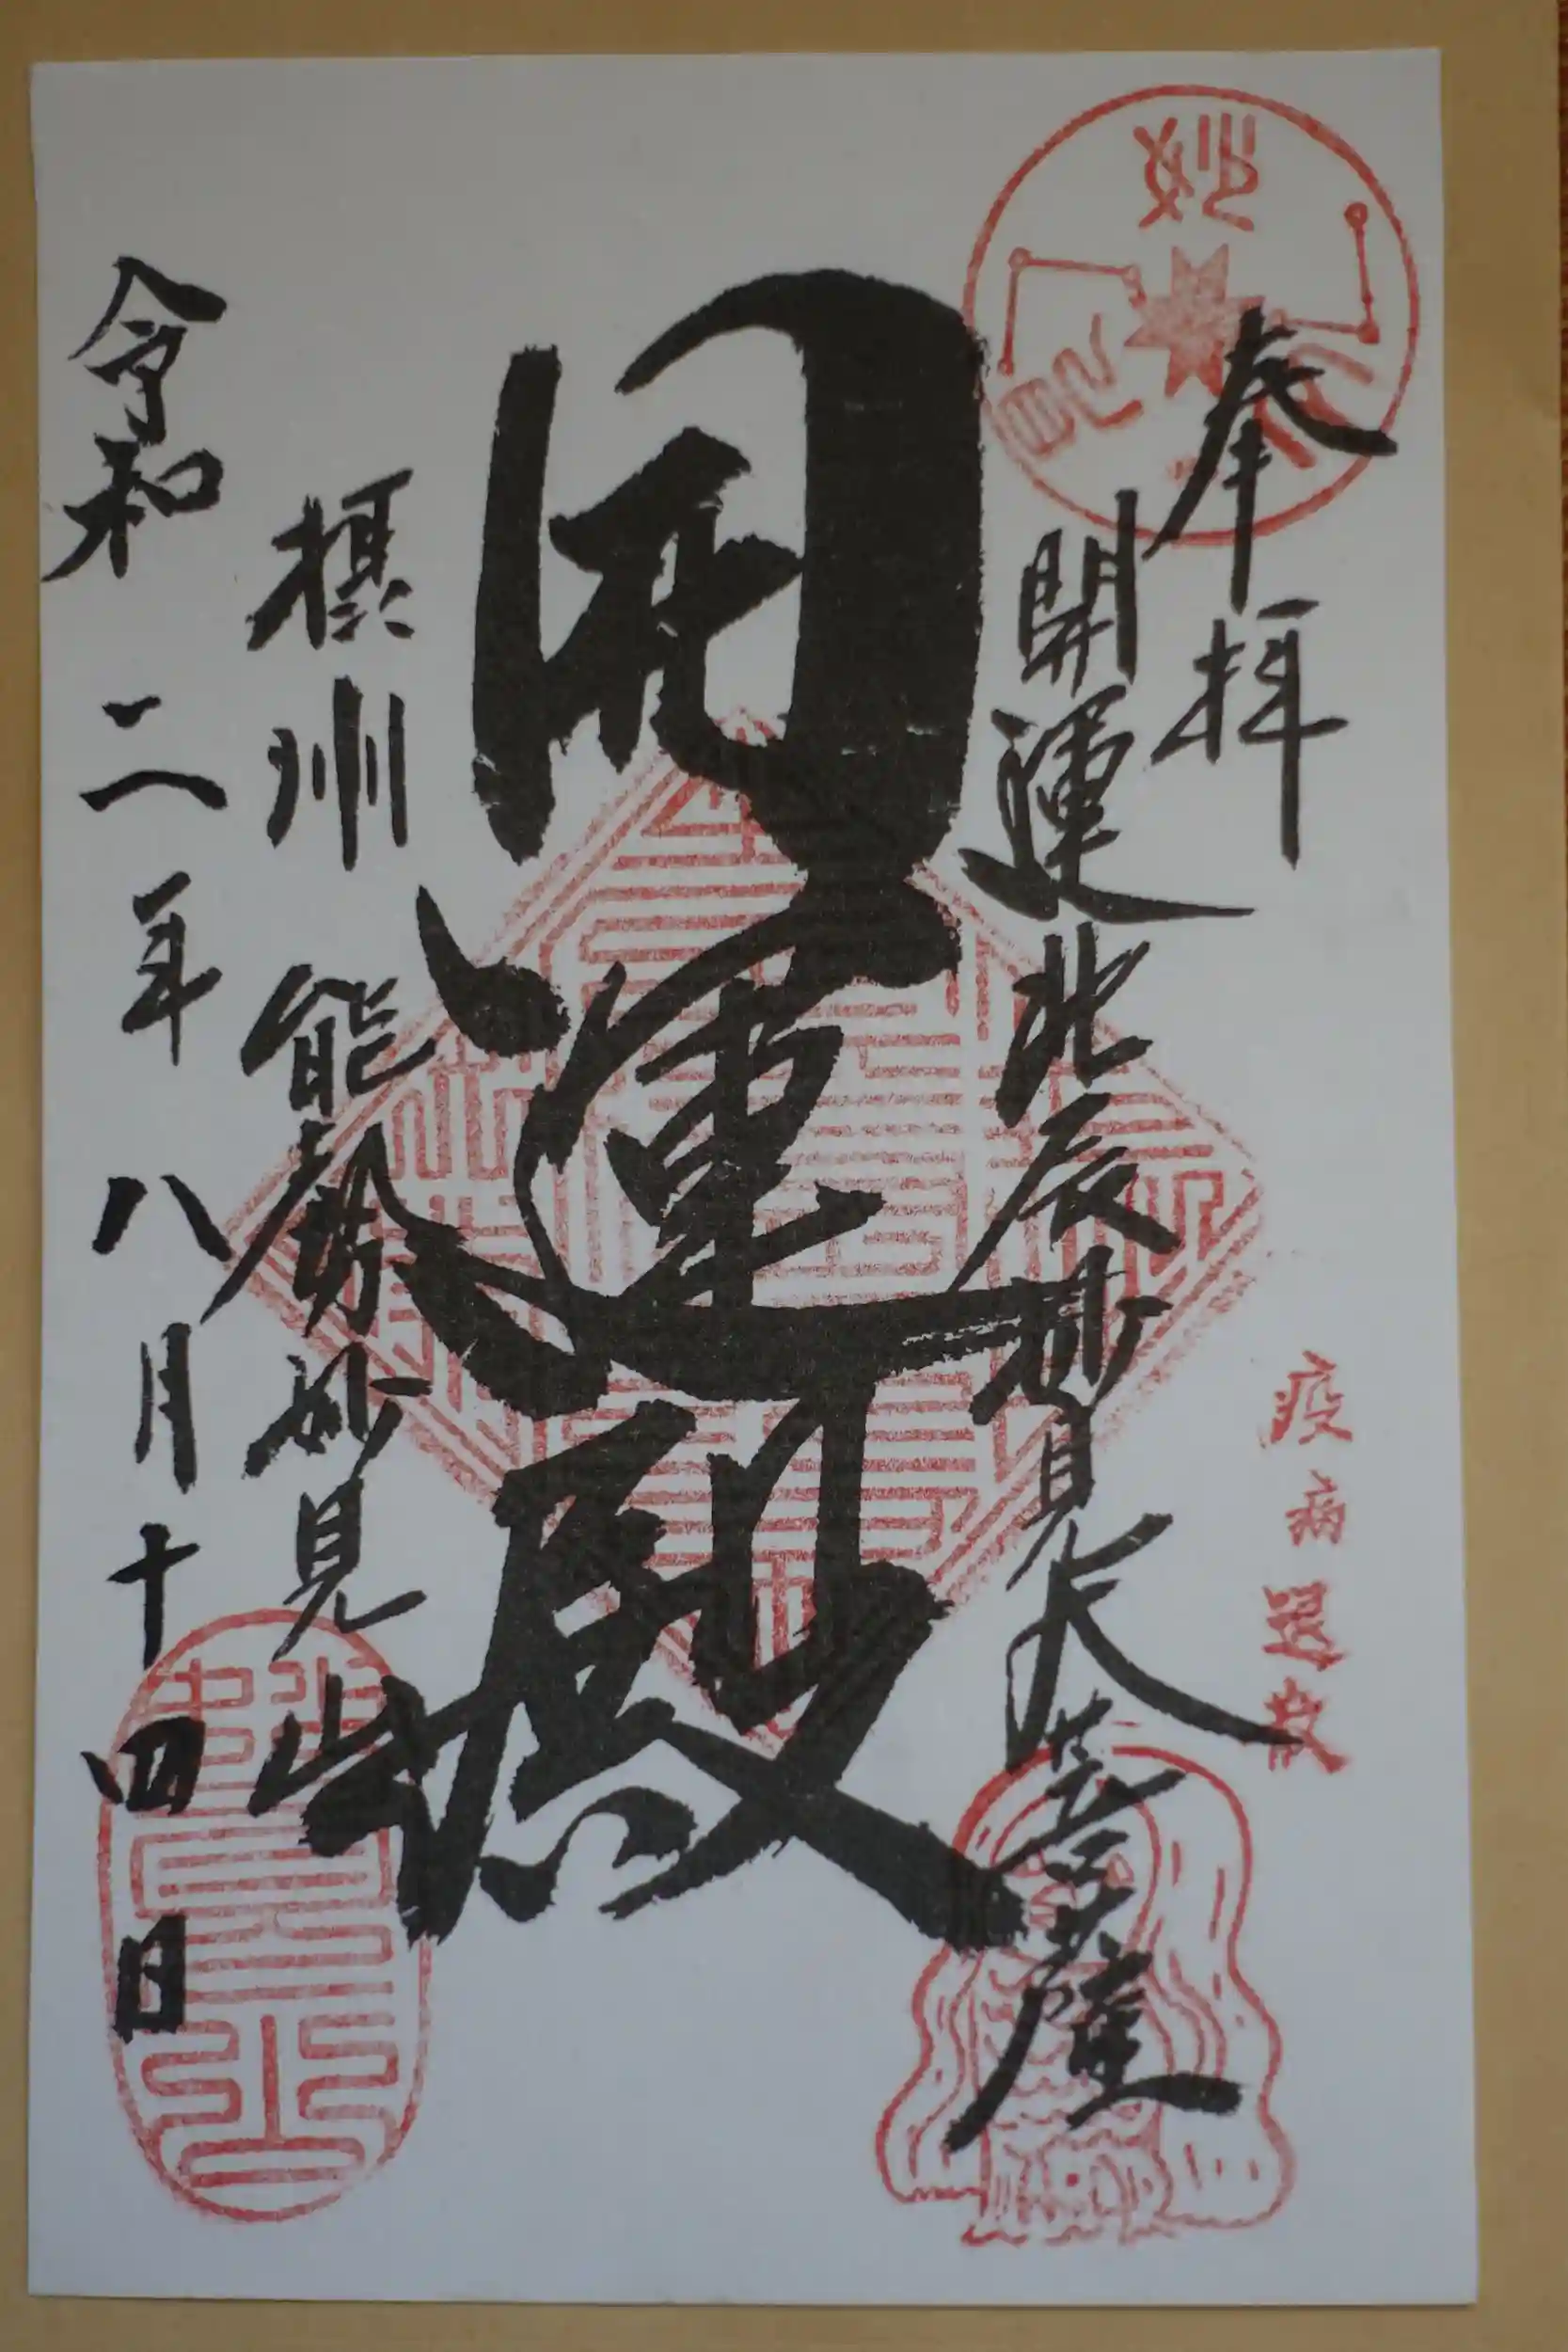 奉拝
開運北辰妙見大菩薩
疫病退散
開運殿
摂州 能勢妙見山
令和二年八月十四日
妙